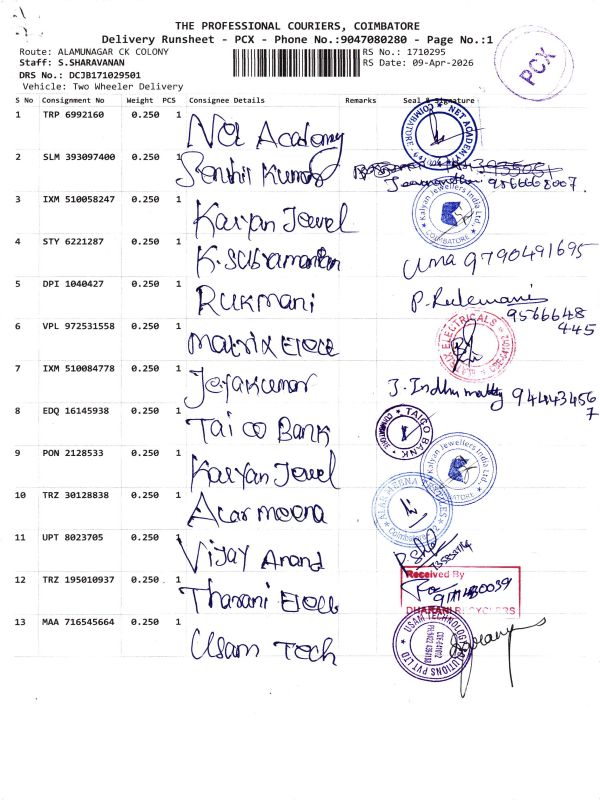 THE PROFESSIONAL COURIERS, COIMBATORE
Delivery Runsheet - PCX - Phone No.:9047080280 - Page No.:1
Route: ALAMUNAGAR CK COLONY
RS No.: 1710295
Staff: S.SHARAVANAN
RS Date: 09-Apr-2026
DRS No.: DCJB171029501
Vehicle: Two Wheeler Delivery
PCX
S No Consignment No Weight PCS Consignee Details Remarks Seal & Signature
1 TRP 6992160 0.250 1 Net Academy
COIMBATORE NET ACADEMY
2 SLM 393097400 0.250 1 Senthil Kumar
9566668007.
3 IXM 510058247 0.250 1 Kalyan Jewel
Kalyan Jewellers India Ltd COIMBATORE
4 STY 6221287 0.250 1 K. Subramaniam
Uma 9790491695
5 DPI 1040427 0.250 1 Rukmani
P. Rukmani
9566648
445
6 VPL 972531558 0.250 1 Matrix Elece
ELECTRICALS
7 IXM 510084778 0.250 1 Jeyakumar
J. Indhumathy 944434567
8 EDQ 16145938 0.250 1 Taico Bank
TAICO BANK
9 PON 2128533 0.250 1 Kalyan Jewel
Kalyan Jewellers India Ltd COIMBATORE
10 TRZ 30128838 0.250 1 Alar meena
Coimbatore
11 UPT 8023705 0.250 1 Vijay Anand
12 TRZ 195010937 0.250 1 Tharani Elece
Received By
For
DHARANI RECYCLERS
13 MAA 716545664 0.250 1 Usam Tech
USAM TECHNOLOGY SOLUTIONS PVT LTD